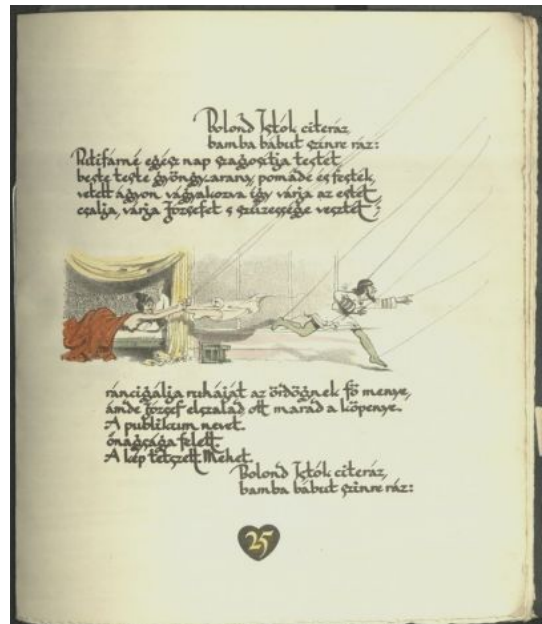 Bolond Istók citeráz,
bamba bábut szinre ráz:
Putifárné egész nap szagosítja testét,
beste teste gyöngy-arany, pomádé és festék,
vetett ágyon vágyakozva így várja az estét,
csalja, várja Józsefet s szüzessége vesztét;
ráncigálja ruháját az ördögnek fő menye,
ámde József elszalad ott marad a köpenye.
A publikum nevet.
őnagysága felett.
A kép tetszett
Bolond Istók citeráz,
bamba bábut szinre ráz:
25